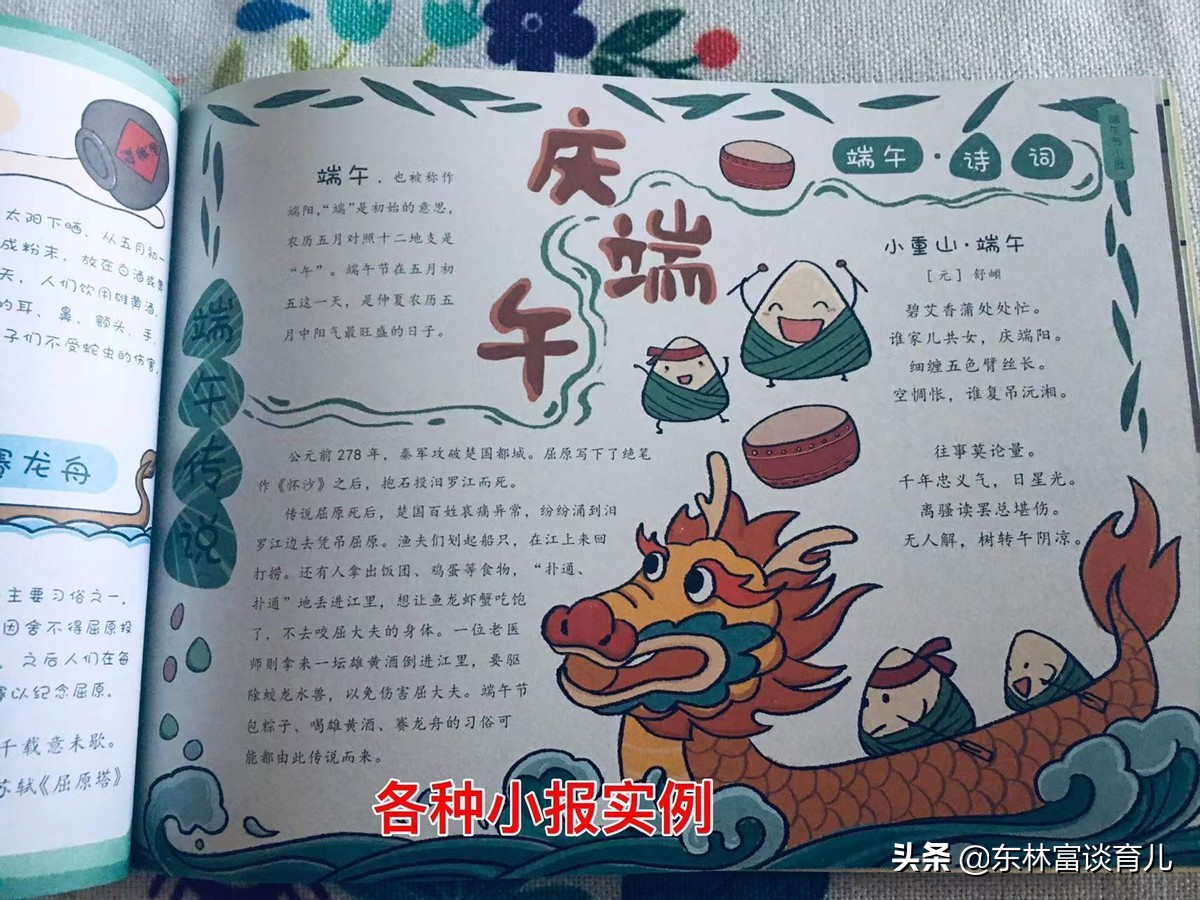 太阳下晒，从五月初一
成粉末，放在白酒或黄
天，人们饮用雄黄酒，
的耳、鼻、额头、手、
子们不受蛇虫的伤害
赛龙舟
主要习俗之一，
因舍不得屈原投
，之后人们在每
以纪念屈原。
千载意未歇。
苏轼《屈原塔》
庆端午
端午，也被称作
端阳，“端”是初始的意思，
农历五月对照十二地支是
“午”。端午节在五月初
五这一天，是仲夏农历五
月中阳气最旺盛的日子。
端午传说
公元前278年，秦军攻破楚国都城。屈原写下了绝笔
作《怀沙》之后，抱石投汨罗江而死。
传说屈原死后，楚国百姓哀痛异常，纷纷涌到汨
罗江边去凭吊屈原。渔夫们划起船只，在江上来回
打捞。还有人拿出饭团、鸡蛋等食物，“扑通、
扑通”地丢进江里，想让鱼龙虾蟹吃饱
了，不去咬屈大夫的身体。一位老医
师则拿来一坛雄黄酒倒进江里，要驱
除蛟龙水兽，以免伤害屈大夫。端午节
包粽子、喝雄黄酒、赛龙舟的习俗可
能都由此传说而来。
端午·诗词
小重山·端午
［元］舒頔
碧艾香蒲处处忙。
谁家儿共女，庆端阳。
细缠五色臂丝长。
空惆怅，谁复吊沅湘。
往事莫论量。
千年忠义气，日星光。
离骚读罢总堪伤。
无人解，树转午阴凉。
端午节小报
各种小报实例
头条 @东林富谈育儿